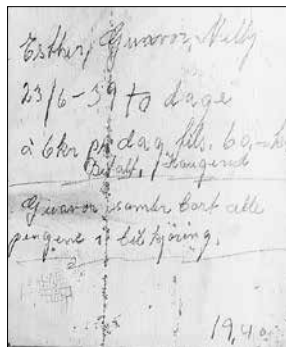 Esther, Gunvor, Nelly
23/6-39 to dage
à 6kr pr dag tils. 60,- kr
Betalt,
Gunvor samler bort alle
pengene til kjöring.
19,40